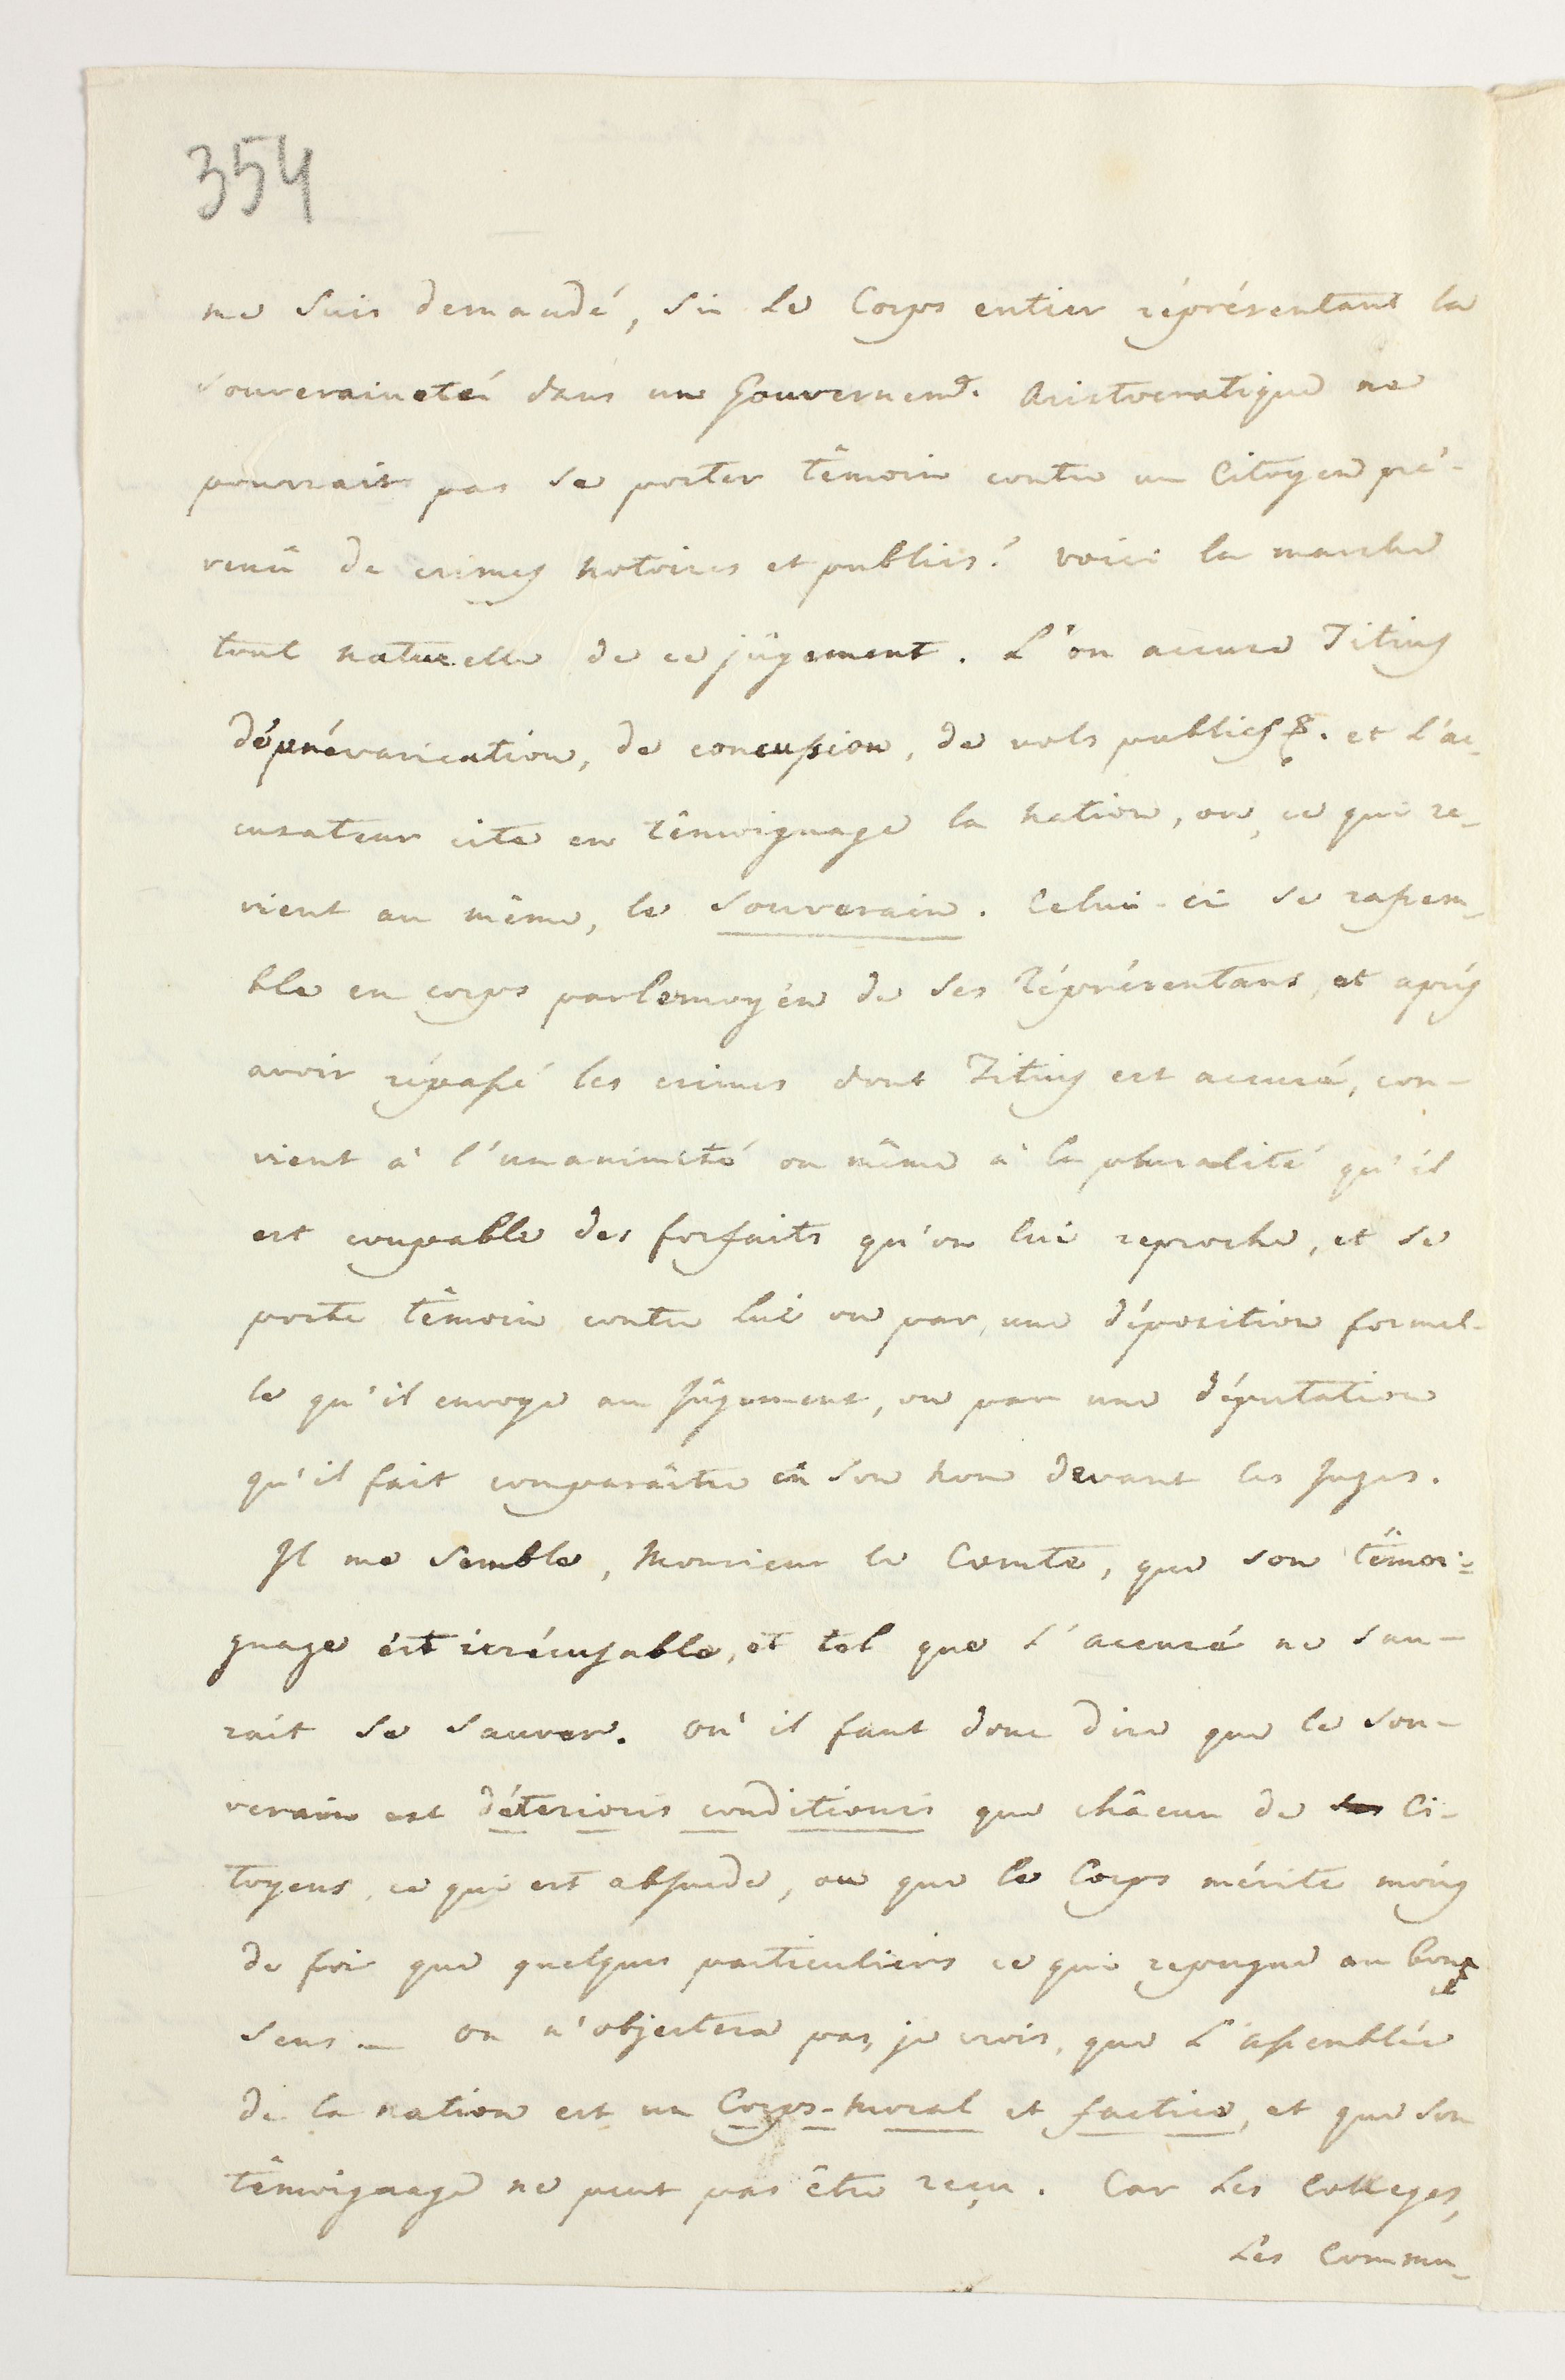 354
me suis demandé, si le Corps entier réprésentant la
souveraineté dans un Gouvernemt. Aristocratique ne
pourrait pas se porter têmoin contre un Citoyen pré-
venû de crimes notoires et publics? voici la marche
tout naturelle de ce jûgement. L'on accuse Titius
de prévarication, de concussion, de vols publics &. et l'ac-
cusateur cite en têmoignage la nation, ou, ce qui re-
vient au même, le Souverain. Celui-ci se rassem-
ble en corps par le moyén de ses réprésentans, et après
avoir répassé les crimes dont Titius est accusé, con-
vient à l'unanimité ou même à la pluralité qu'il
est coupable des forfaits qu'on lui reproche, et se
porte têmoin contre lui ou par une déposition formel-
le qu'il envoye au Jûgement, ou par une députation
qu'il fait comparaître en son nom devant les Juges.
Il me semble, Monsieur le Comte, que son têmoi-
gnage est irrécusable, et tel que l'accusé ne sau-
rait se sauver. ou il faut donc dire que le sou-
verain est déterioris conditionis que châcun de Ci-
toyens, ce qui est absurde, ou que le Corps mérite moins
de foi que quelques particuliers ce qui repugne au bon
sens — on n'objectera pas, je crois, que l'assemblée
de la nation est un Corps-moral et factice, et que son
têmoignage ne peut pas être reçu. Car les Colleges,
les Commu-